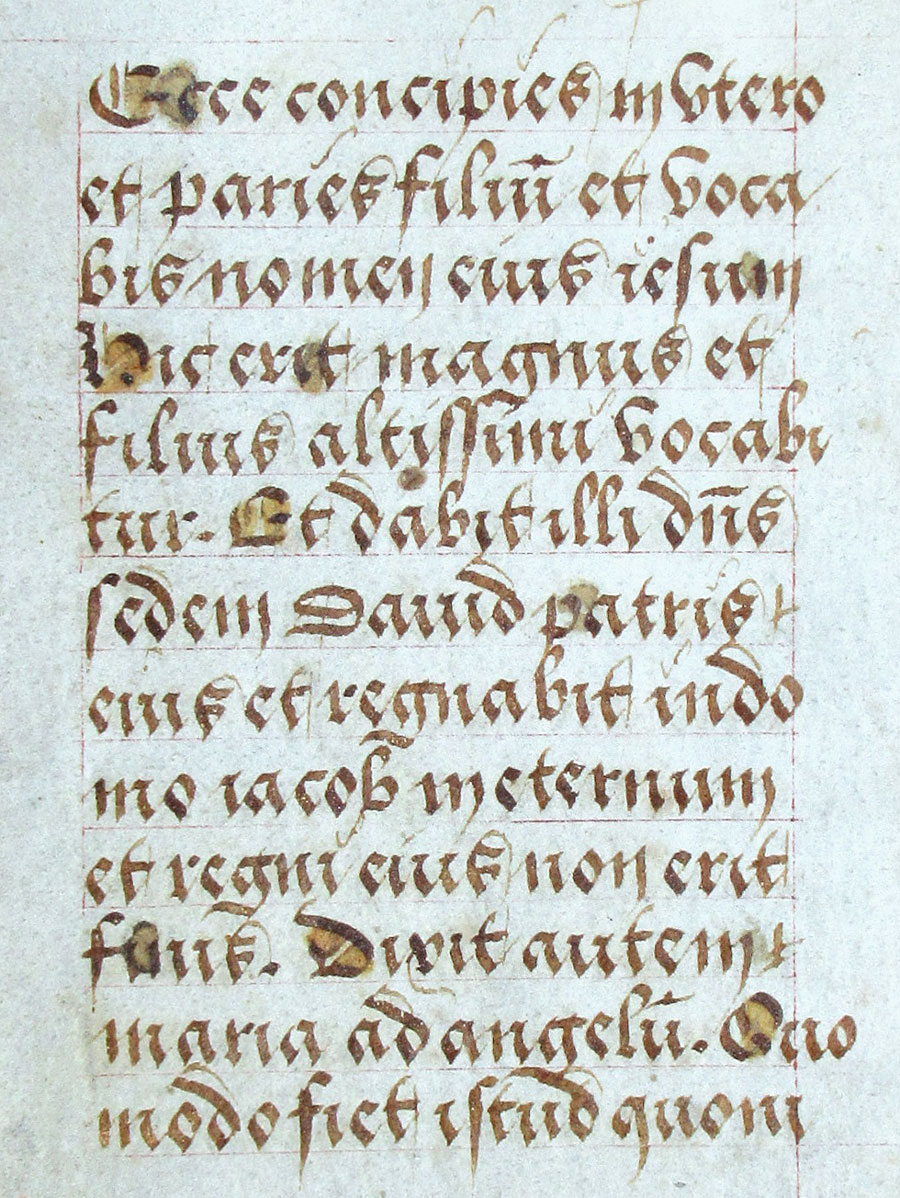 Ecce concipies in vtero
et paries filiū et voca
bis nomen eius iesum
Hic erit magnus et
filius altissimi vocabi
tur. Et dabit illi dn̄s
sedem Dauid patris
eius et regnabit indo
mo iacob in eternum
et regni eius non erit
finis. Dixit autem
maria ad angelū. Quo
modo fiet istud quoni